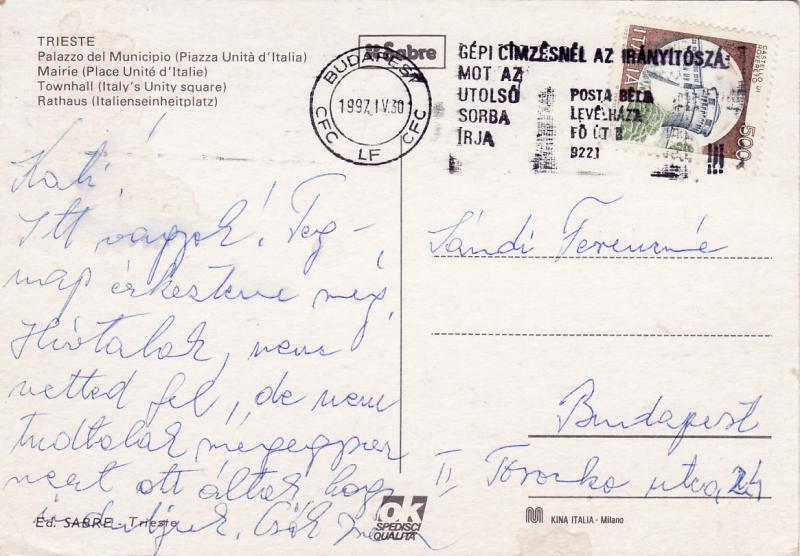 TRIESTE
Palazzo del Municipio (Piazza Unità d'Italia)
Mairie (Place Unité d'Italie)
Townhall (Italy's Unity square)
Rathaus (Italienseinheitplatz)
Sabre
BUDAPEST
1997.IV.30
CFC LF CFC
GÉPI CÍMZÉSNÉL AZ IRÁNYÍTÓSZÁ-
MOT AZ
UTOLSÓ
SORBA
ÍRJA
POSTA BÉLA
LEVÉLHÁZA
FŐ ÚT 8
9221
!!!
ITALIA
CASTELLO DI
ROVERETO
500
Kati!
Itt vagyok! Teg-
nap érkeztem meg.
Hívtalak, nem
vetted fel, de nem
tudtalak mégegyszer
mert ott álltak hogy
induljunk. Csók
Sándi Ferencné
Budapest
II Torockó utca 24
Ed. SABRE - Trieste
ok
SPEDISCI
QUALITÀ
KINA ITALIA - Milano